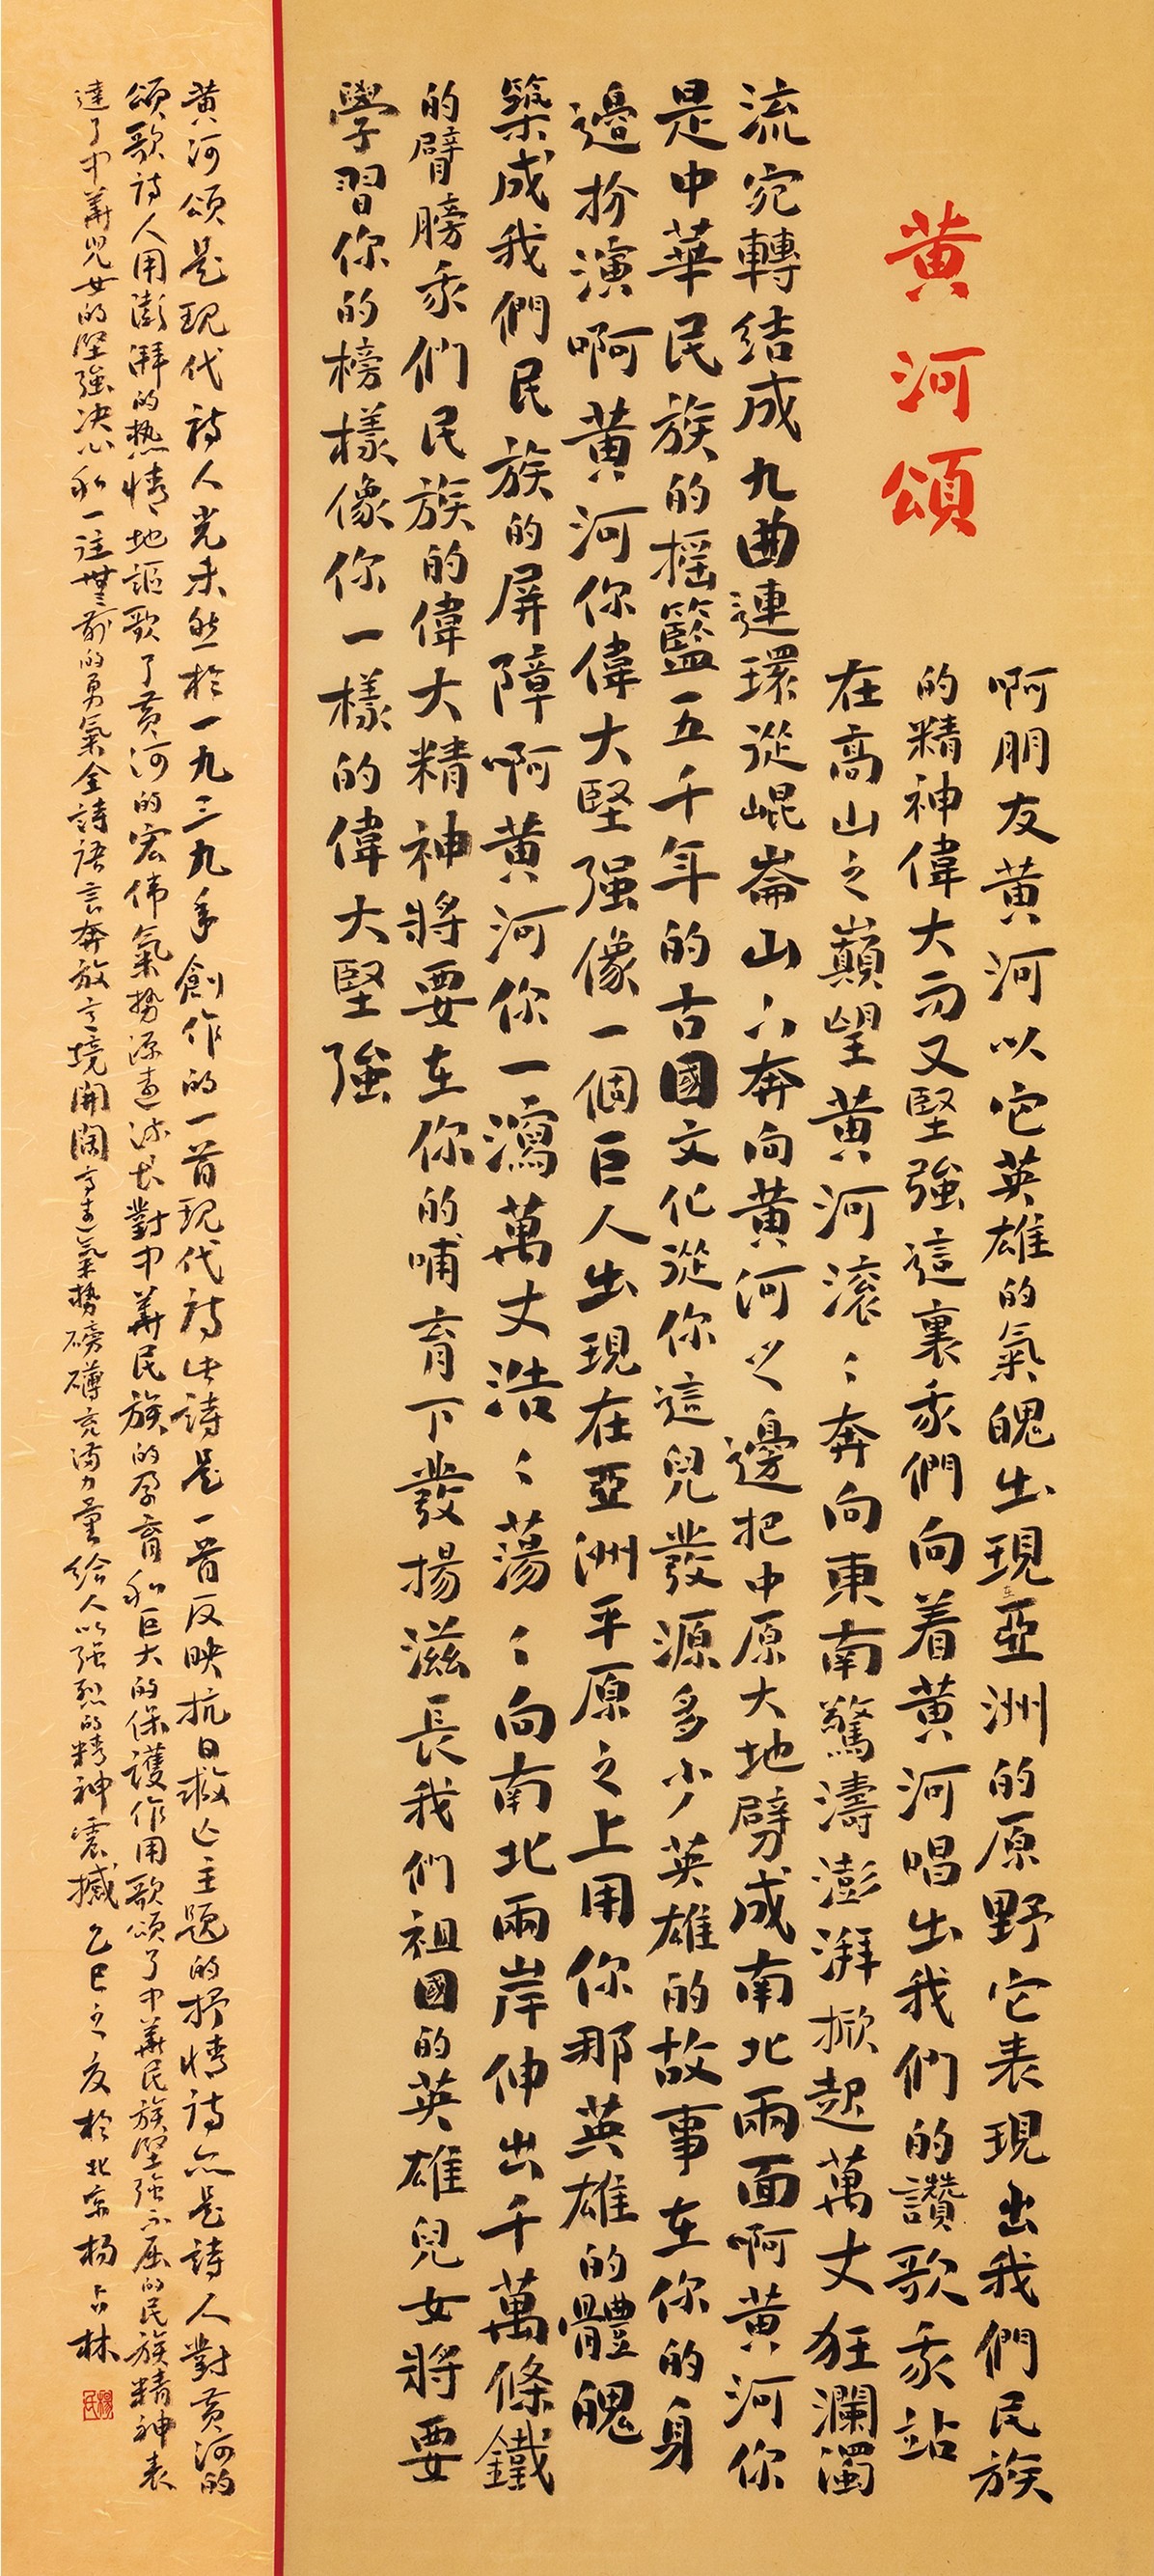 黄河頌
啊朋友黄河以它英雄的氣魄出現在亞洲的原野它表現出我們民族
的精神偉大而又堅強這裏我們向着黄河唱出我們的讚歌我站
在高山之巔望黄河滚〻奔向東南驚濤澎湃掀起萬丈狂瀾濁
流宛轉结成九曲連環從崐崙山下奔向黄河之邊把中原大地劈成南北兩面啊黄河你
是中華民族的摇籃五千年的古國文化從你這兒發源多少英雄的故事在你的身
邊扮演啊黄河你偉大堅强像一個巨人出現在亞洲平原之上用你那英雄的體魄
築成我們民族的屏障啊黄河你一瀉萬丈浩〻蕩〻向南北兩岸伸出千萬條鐵
的臂膀我們民族的偉大精神將要在你的哺育下發揚滋長我們祖國的英雄兒女將要
學習你的榜樣像你一樣的偉大堅強
黄河頌是現代詩人光未然於一九三九年創作的一首現代詩此詩是一首反映抗日救亡主題的抒情詩亦是詩人對黄河的
頌歌詩人用澎湃的热情地謳歌了黄河的宏伟氣勢源遠流長對中華民族的孕育和巨大的保護作用歌頌了中華民族堅強不屈的民族精神表
達了中華兒女的堅強决心和一往無前的勇氣全詩語言奔放意境開闊高遠氣勢磅礴充满力量给人以强烈的精神震撼乙巳之夏於北京杨占林